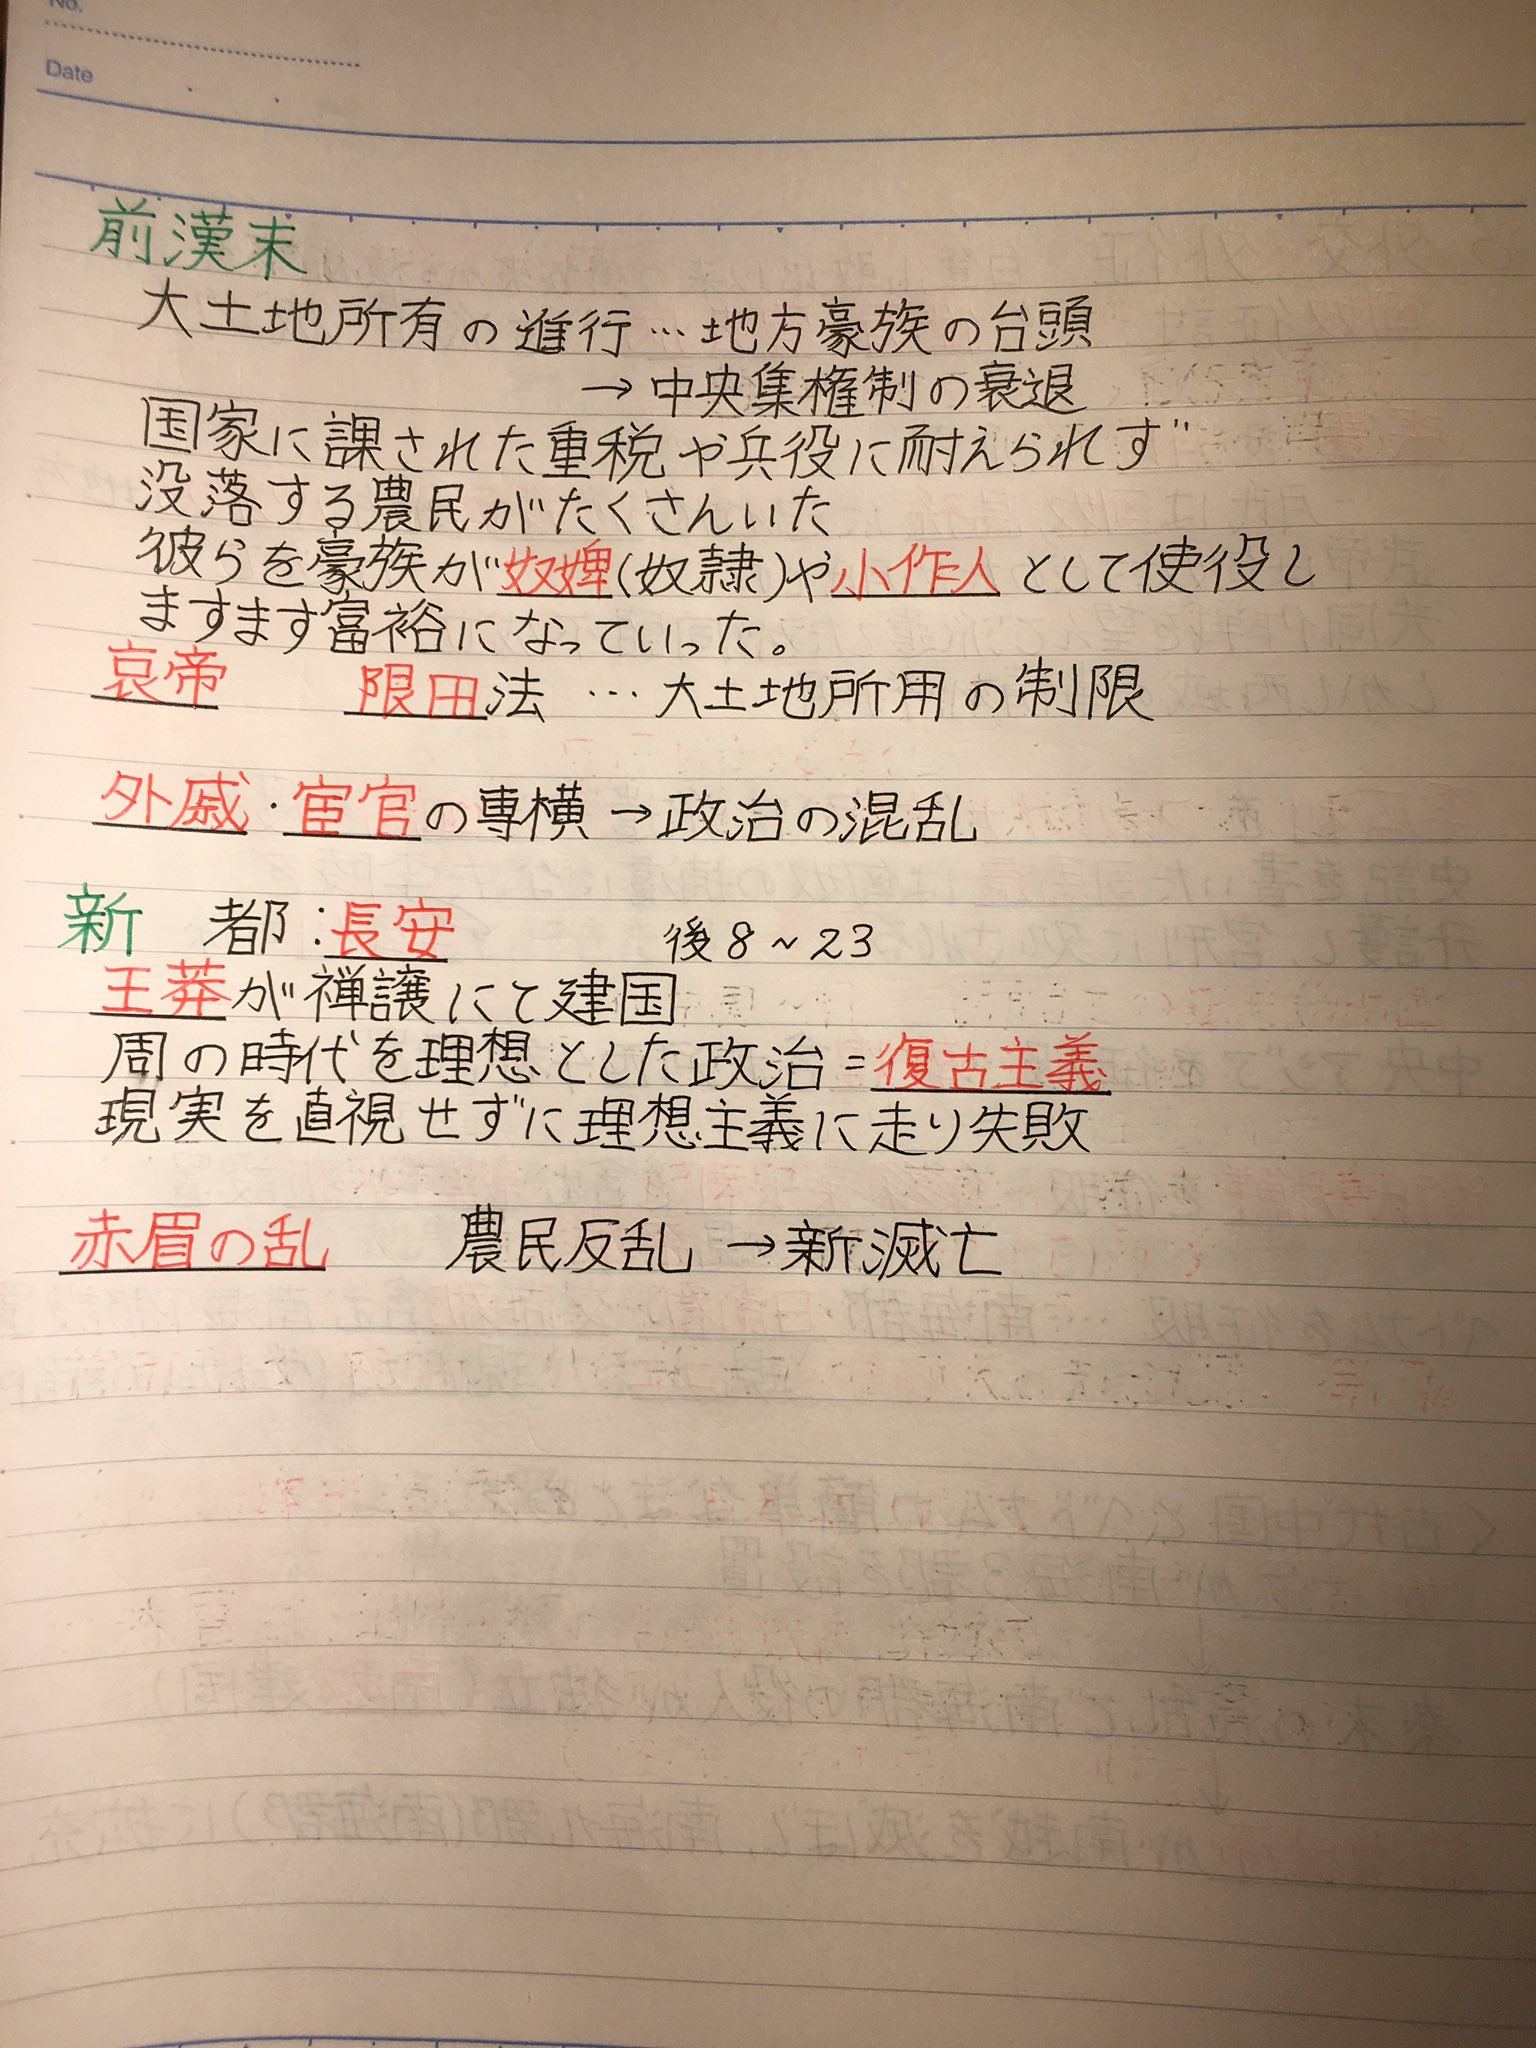 No.
Date
前漢末
大土地所有の進行…地方豪族の台頭
→中央集権制の衰退
国家に課された重税や兵役に耐えられず
没落する農民がたくさんいた
彼らを豪族が奴婢(奴隷)や小作人として使役し
ますます富裕になっていった。
哀帝 限田法 …大土地所用の制限
外戚・宦官の専横→政治の混乱
新 都:長安 後8~23
王莽が禅譲にて建国
周の時代を理想とした政治=復古主義
現実を直視せずに理想主義に走り失敗
赤眉の乱 農民反乱→新滅亡